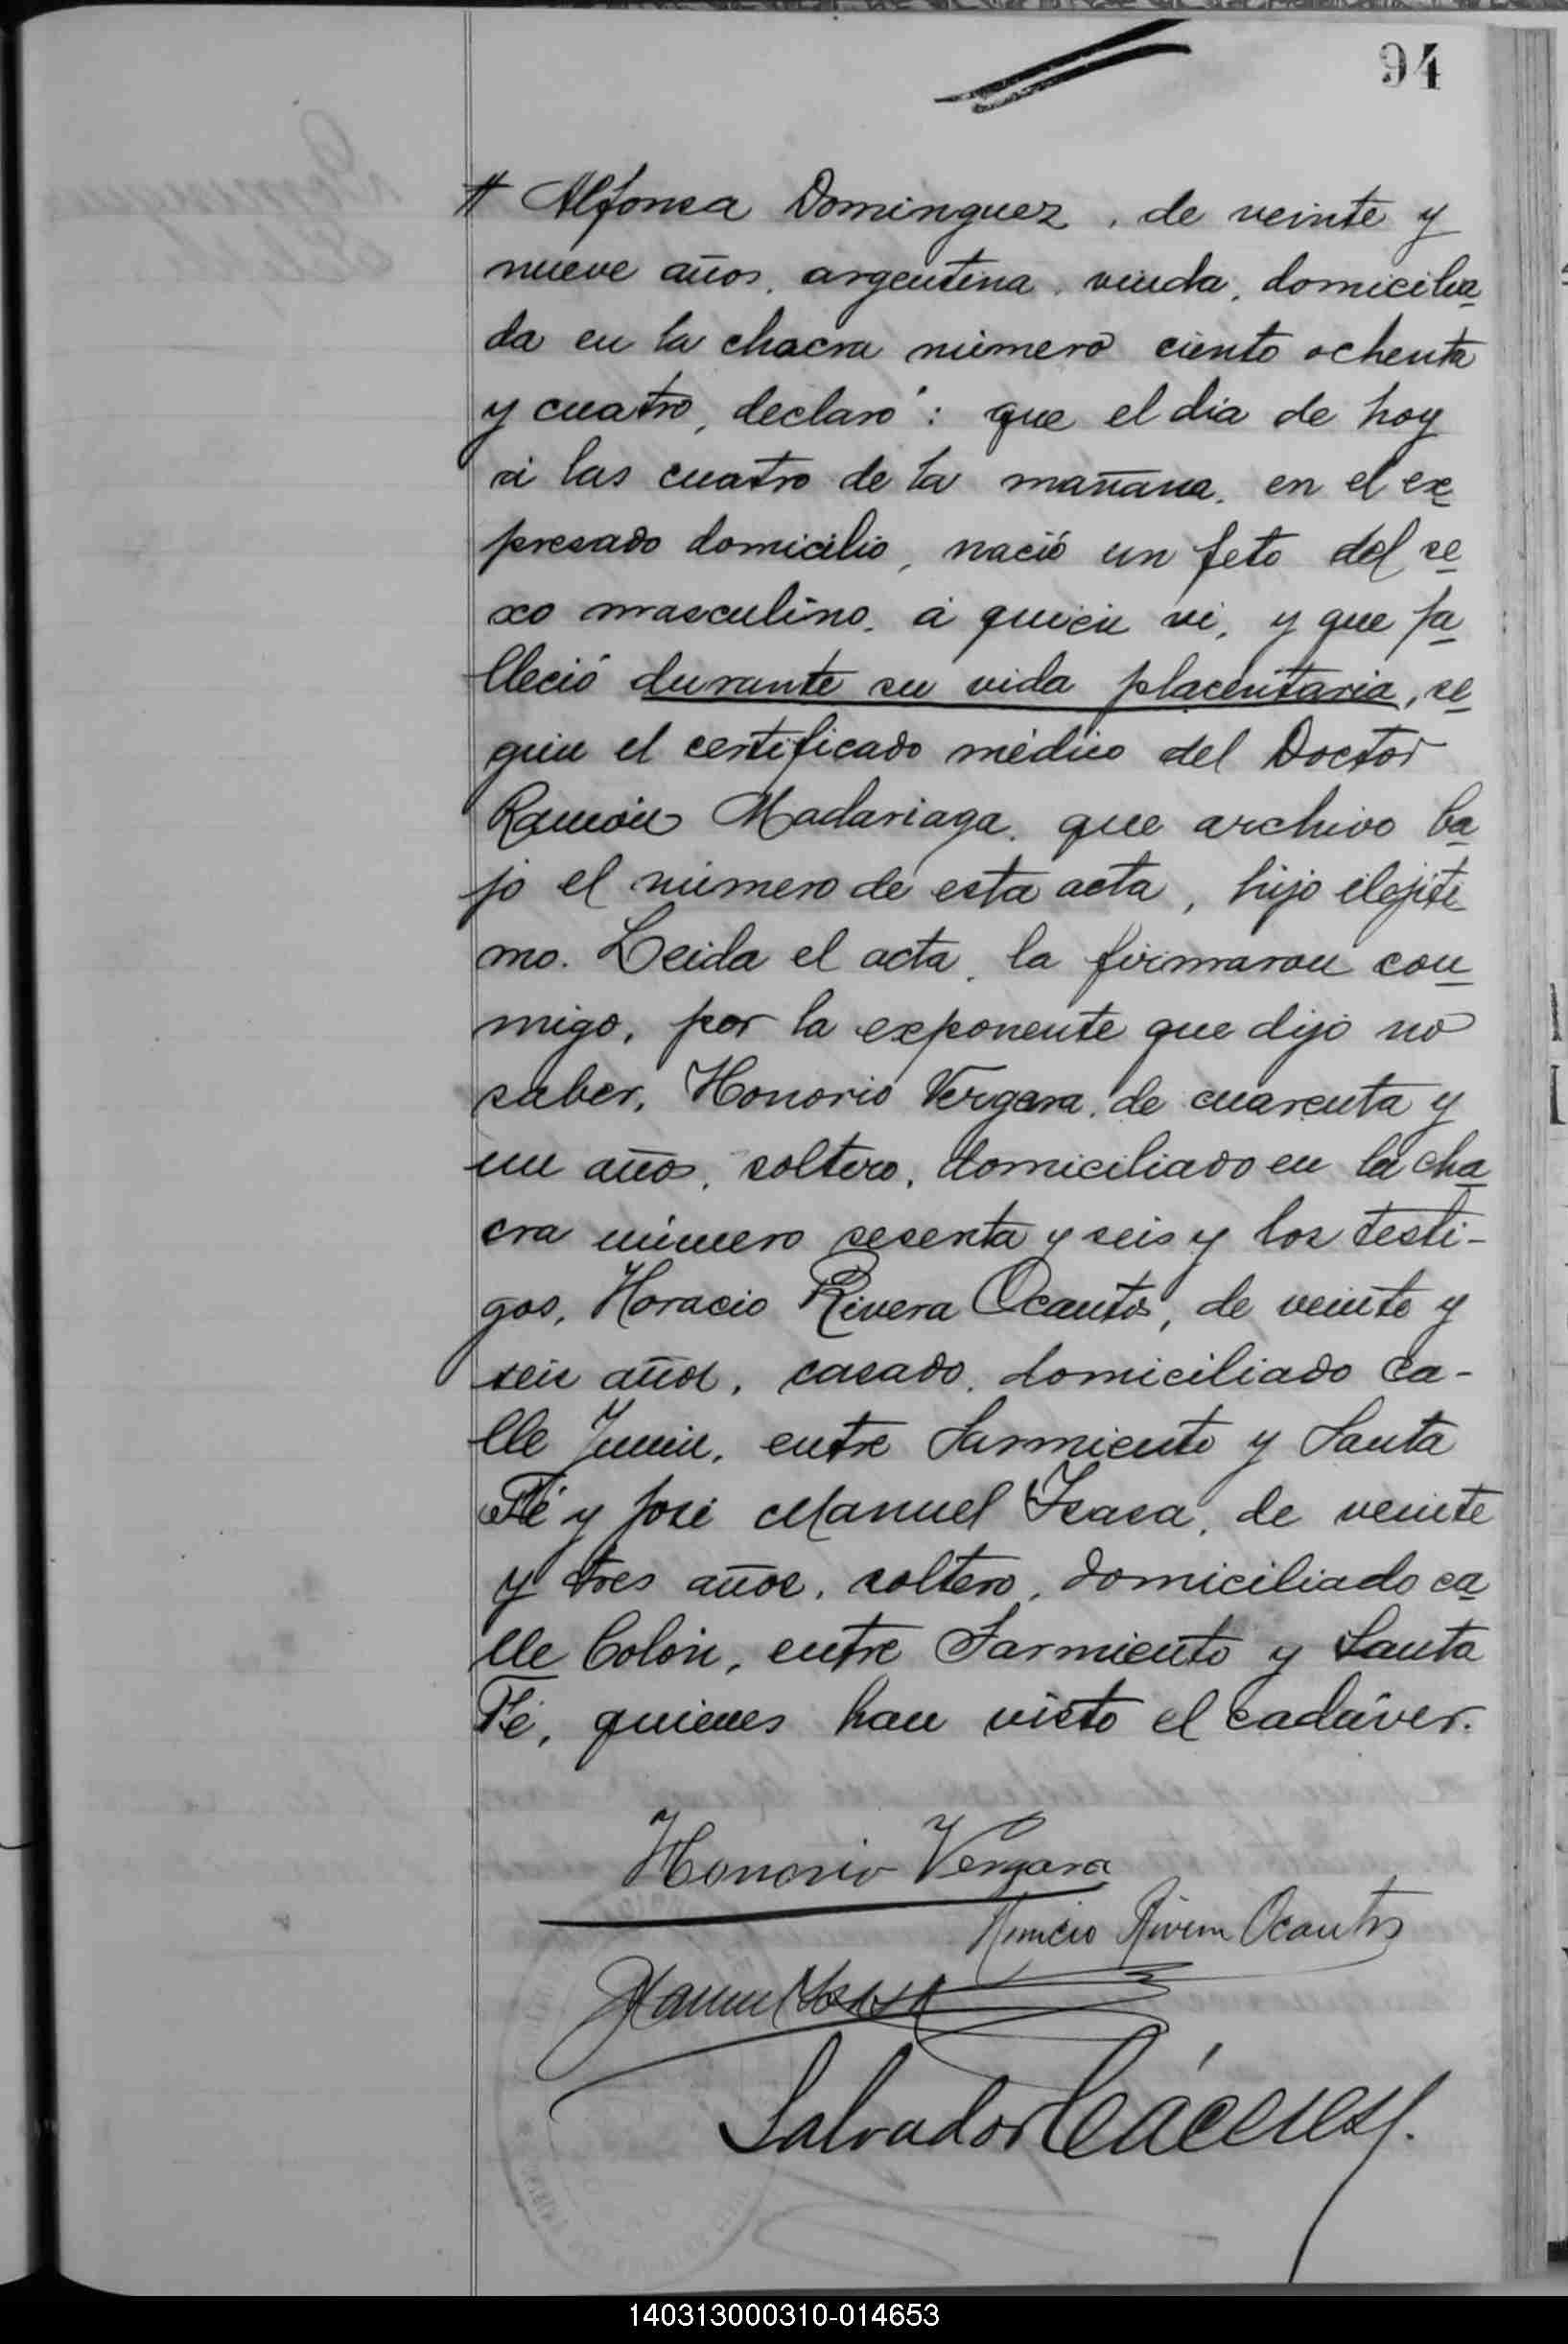 94
// Alfonsa Dominguez, de veinte y
nueve años, argentina, viuda, domicilia
da en la chacra número ciento ochenta
y cuatro, declaró: que el dia de hoy
á las cuatro de la mañana, en el ex
presado domicilio, nació un feto del se
xo masculino, á quién vi, y que fa
lleció durante su vida placentaria, se
gún el certificado médico del Doctor
Ramón Madariaga, que archivo ba
jo el número de esta acta, hijo ilejiti
mo. Leida el acta, la firmaron con
migo, por la exponente que dijo no
saber, Honorio Vergara, de cuarenta y
un años, soltero, domiciliado en la cha
cra número sesenta y seis y los testi-
gos, Horacio Rivera Ocantos, de veinte y
seis años, casado, domiciliado ca-
lle Junin, entre Sarmiento y Santa
Fé y José Manuel Isasa, de veinte
y tres años, soltero, domiciliado ca
lle Colón, entre Sarmiento y Santa
Fé, quienes han visto el cadáver.
Honorio Vergara
Horacio Rivera Ocantos
JManuel Isasa
Salvador Cáceres
140313000310-014653